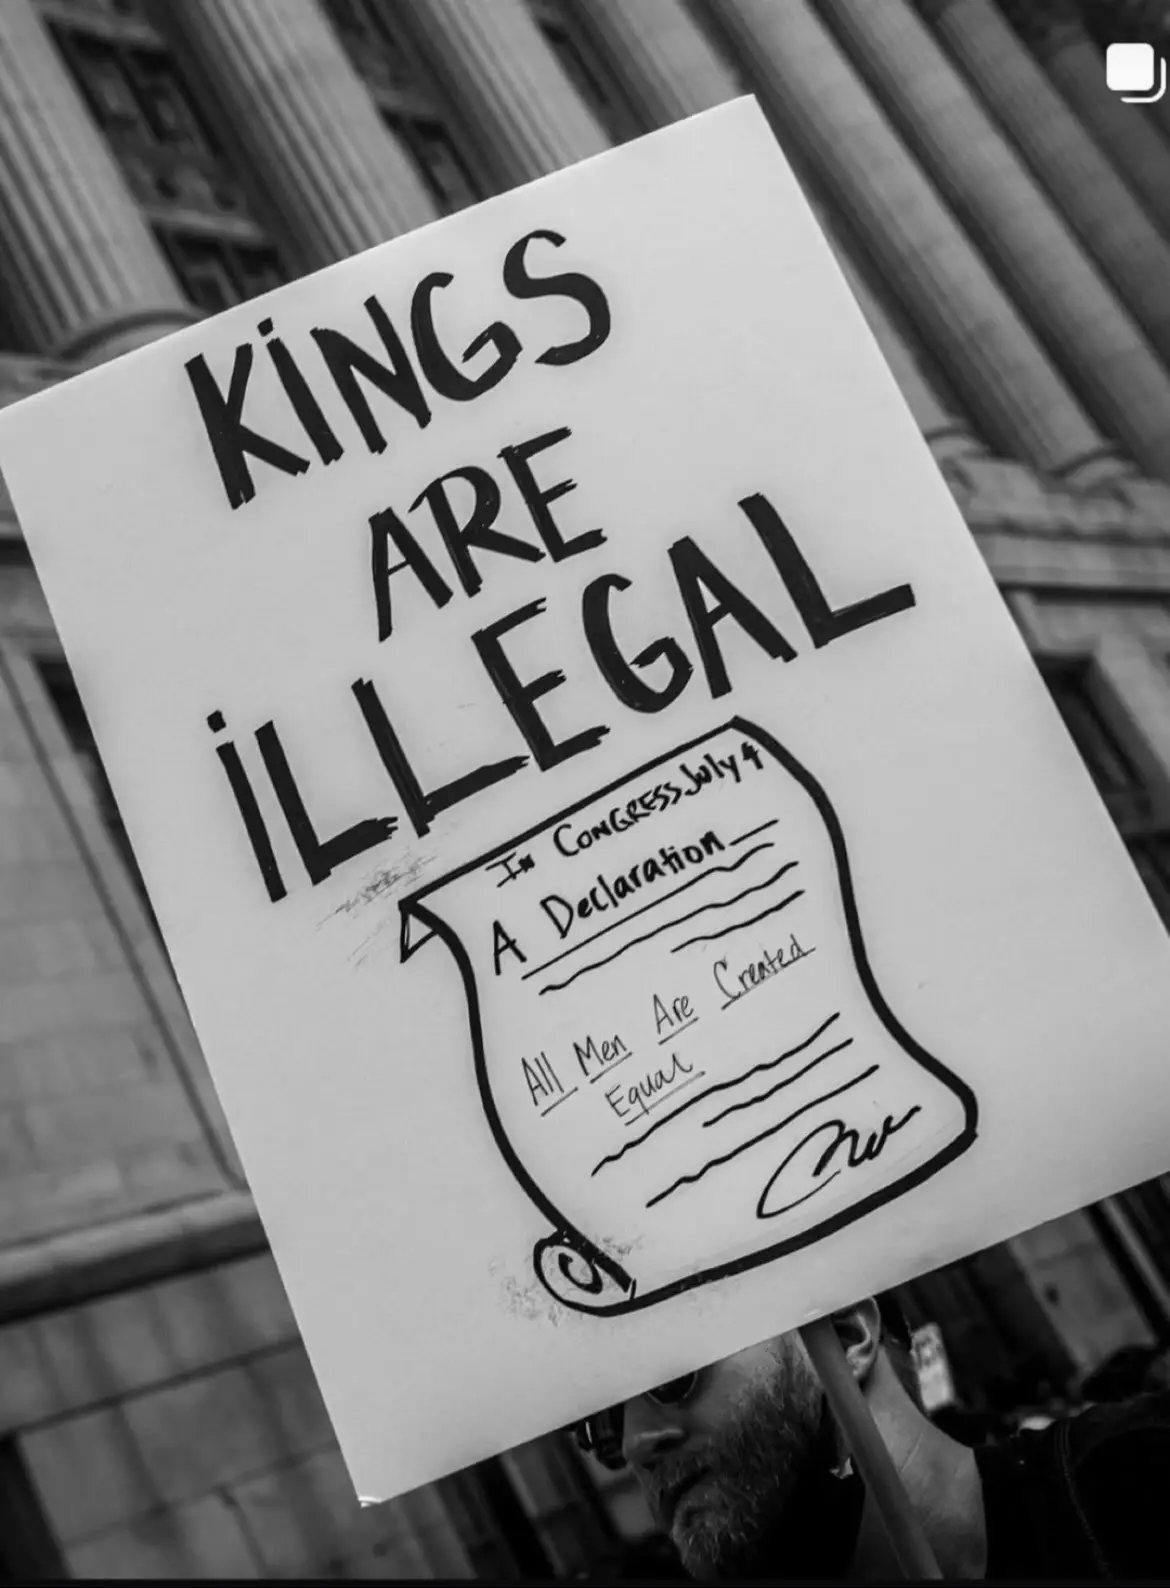 KiNGS
ARE
iLLEGAL
In CONGRESS July 4
A Declaration
All Men Are Created
Equal